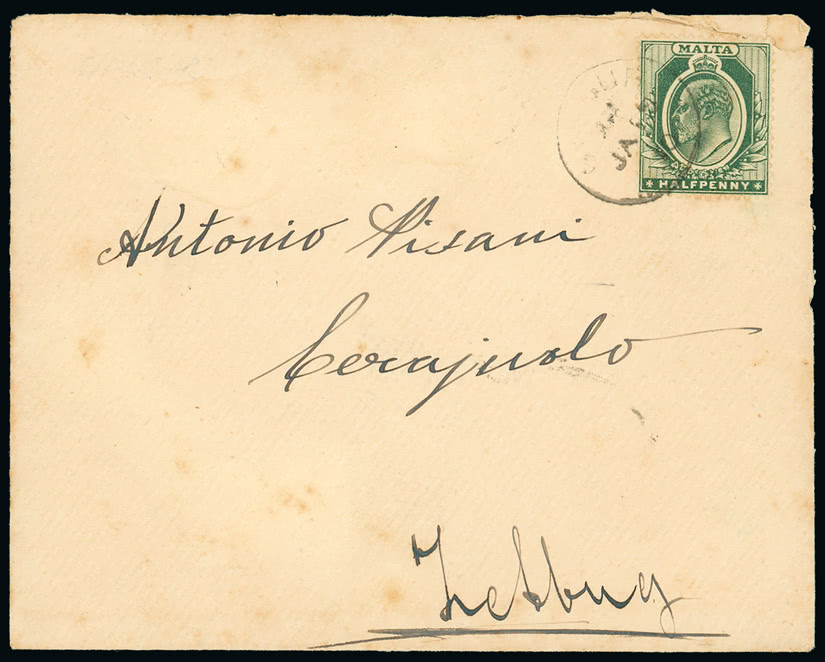 MALTA
HALFPENNY
JA
Antonio Pisani
Cerajuolo
Zebbug